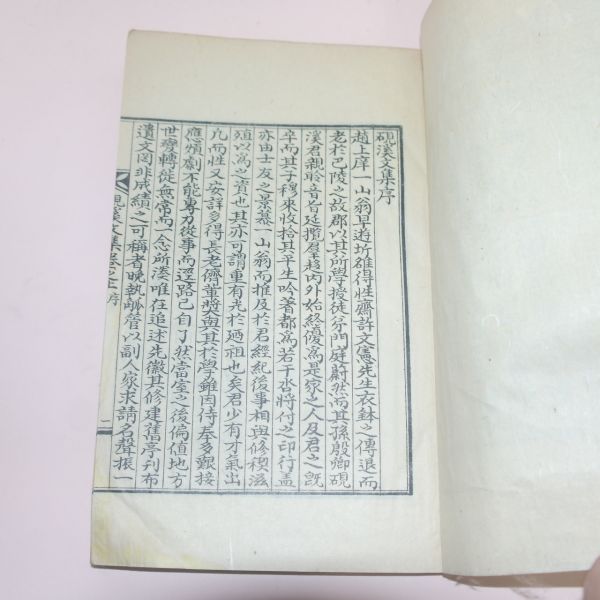 硯溪文集序
趙上庠一山翁早遊於雒得性齋許文憲先生衣鉢之傳退而
老於巴陵之故郡以其所學授徒分門庭蔚然而其孫殷卿硯
溪君親聆音旨廷攬屋趍內外始終優爲是家之人及君之旣
卒而其子穆來收拾其平生吟著都爲若干呇將付之印行盖
亦由士友之景慕一山翁而推及於君經紀後事相與修稧滋
殖以爲之資也其亦可謂重有光於廼祖也矣君少有才氣出
凡而性又安詳多得長老儕輩獎與其於學雖因侍奉多艱接
應煩劇不能專力從事而逕路之自了然當室之後偏値地方
世變轉徙無常而一念所湊唯在追述先徽其修建舊亭刋布
遺文罔非成績之可稱者晚執觚管以副人家求請名聲振一
硯溪文集卷之上 序
一